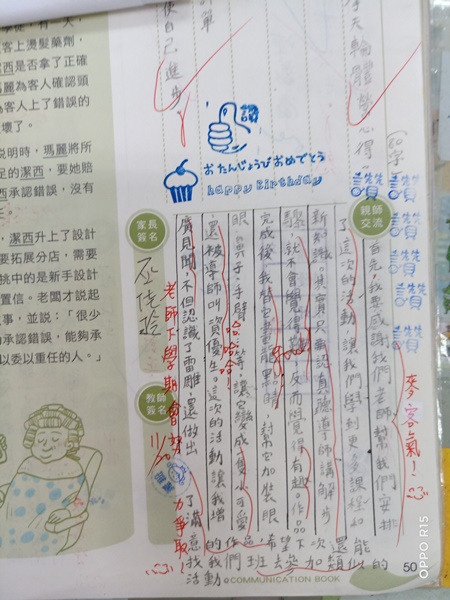 使自己進步
單
體驗心得。
讚
おたんじょうびおめでとう
happy Birthday
親師交流
讚讚讚讚讚
首先我要感謝我們老師幫我們安排
了這次的活動,讓我們學到更多課程和
新知識。其實只要認真聽導師講解步
驟,就不會覺得難,反而覺得有趣。作品
完成後,我替它畫龍點睛,幫它加裝眼
眼、
子、手臂
等,讓它變成一隻小可愛
還被導師叫資優生。這次的活動讓我增
廣見聞,不但認識了雷雕,還做出
了滿意
的作色,希望下次還能
找我們班去參加類似的
活動
麥客氣!
哈哈哈!
老師下學期會努力爭取
家長簽名
教師簽名
11/20
客上燙髮藥劑,
潔西是否拿了正確
瑪麗為客人確認頭
為客人上了錯誤的
壞了。
說明時,瑪麗將所
足的潔西,要她賠
西承認錯誤,沒有
,潔西升上了設計
要拓展分店,需要
挑中的是新手設計
置信。老闆才說起
事,並說:「很少
承認錯誤,能夠承
以委以重任的人。」
COMMUNICATION BOOK
50
OPPO R15